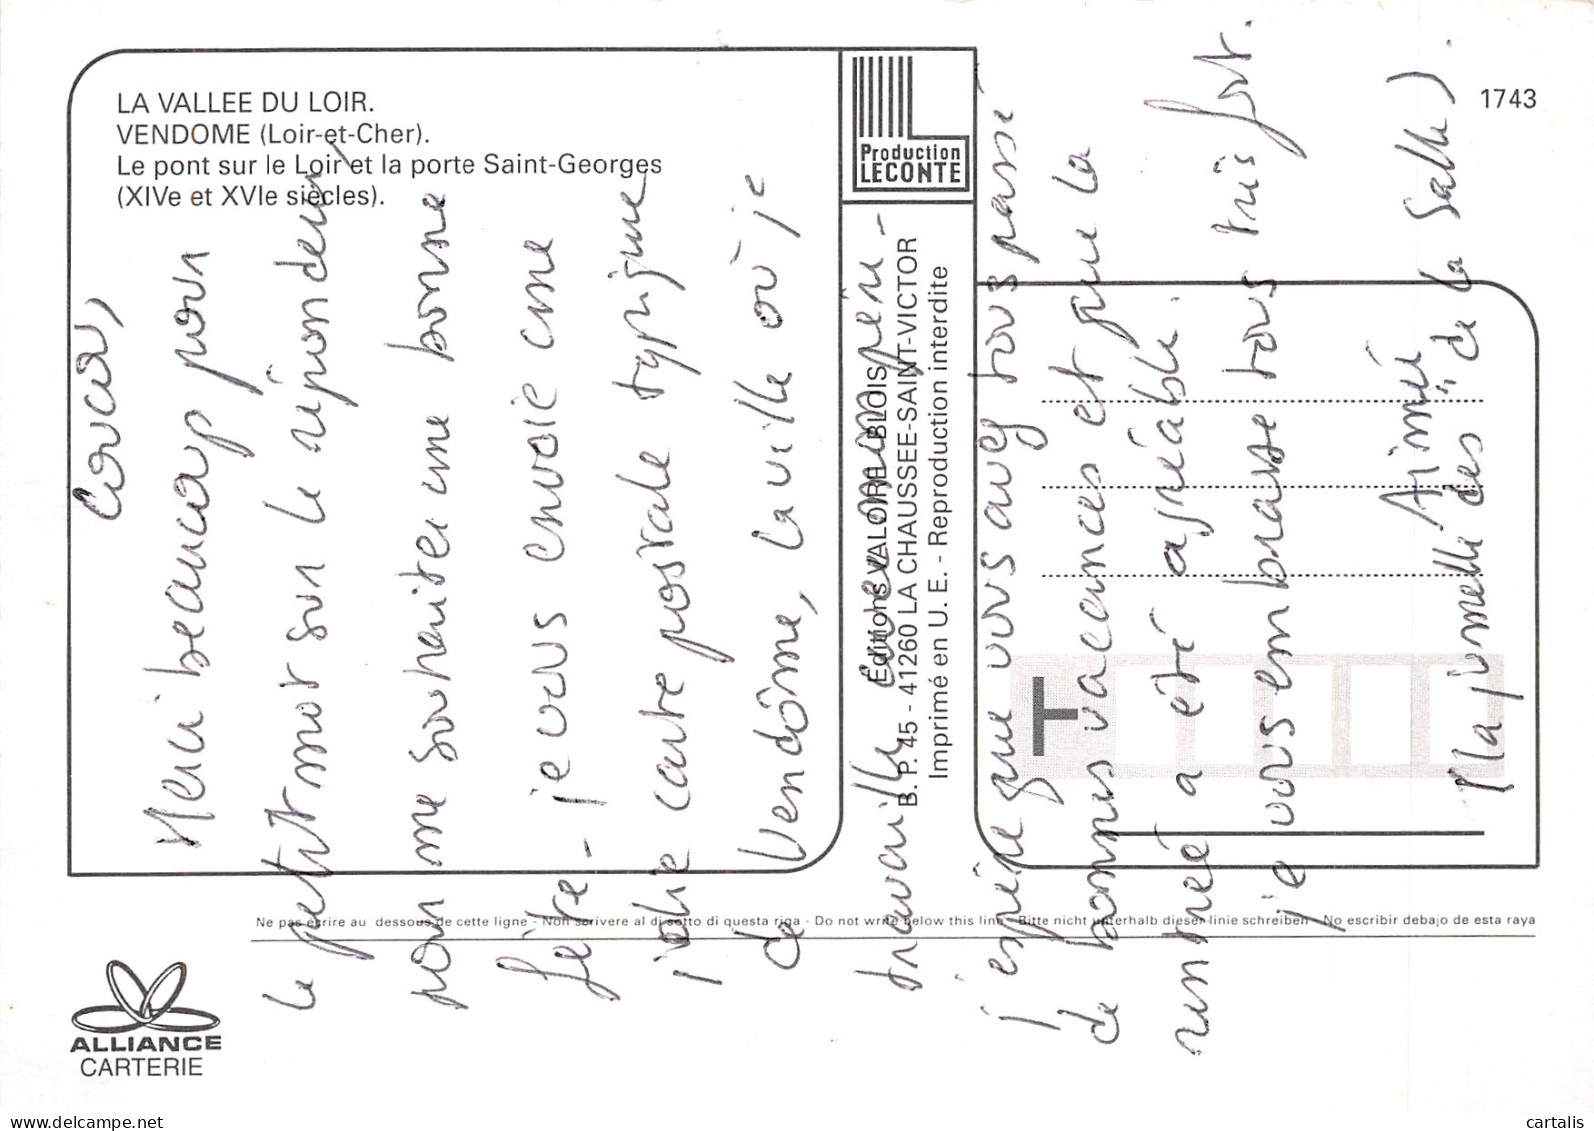 LA VALLEE DU LOIR.
VENDOME (Loir-et-Cher).
Le pont sur le Loir et la porte Saint-Georges
(XIVe et XVIe siècles).
Production
LECONTE
1743
Editions VALOIRE - BLOIS
B. P. 45 - 41260 LA CHAUSSEE-SAINT-VICTOR
Imprimé en U. E. - Reproduction interdite
Coucou,
Merci beaucoup pour
le petit mot sur le répondeur
pour me souhaiter une bonne
fête - je vous envoie une
jolie carte postale typique
de Vendôme, la ville où je
travaille comme mon père -
j'espère que vous avez tous passé
de bonnes vacances et que la
rentrée a été agréable.
je vous embrasse tous très fort.
Aimée
(la jumelle des "de la Salle)
Ne pas écrire au dessous de cette ligne - Non scrivere al di sotto di questa riga - Do not write below this line - Bitte nicht unterhalb dieser linie schreiben - No escribir debajo de esta raya
ALLIANCE
CARTERIE
www.delcampe.net
cartalis